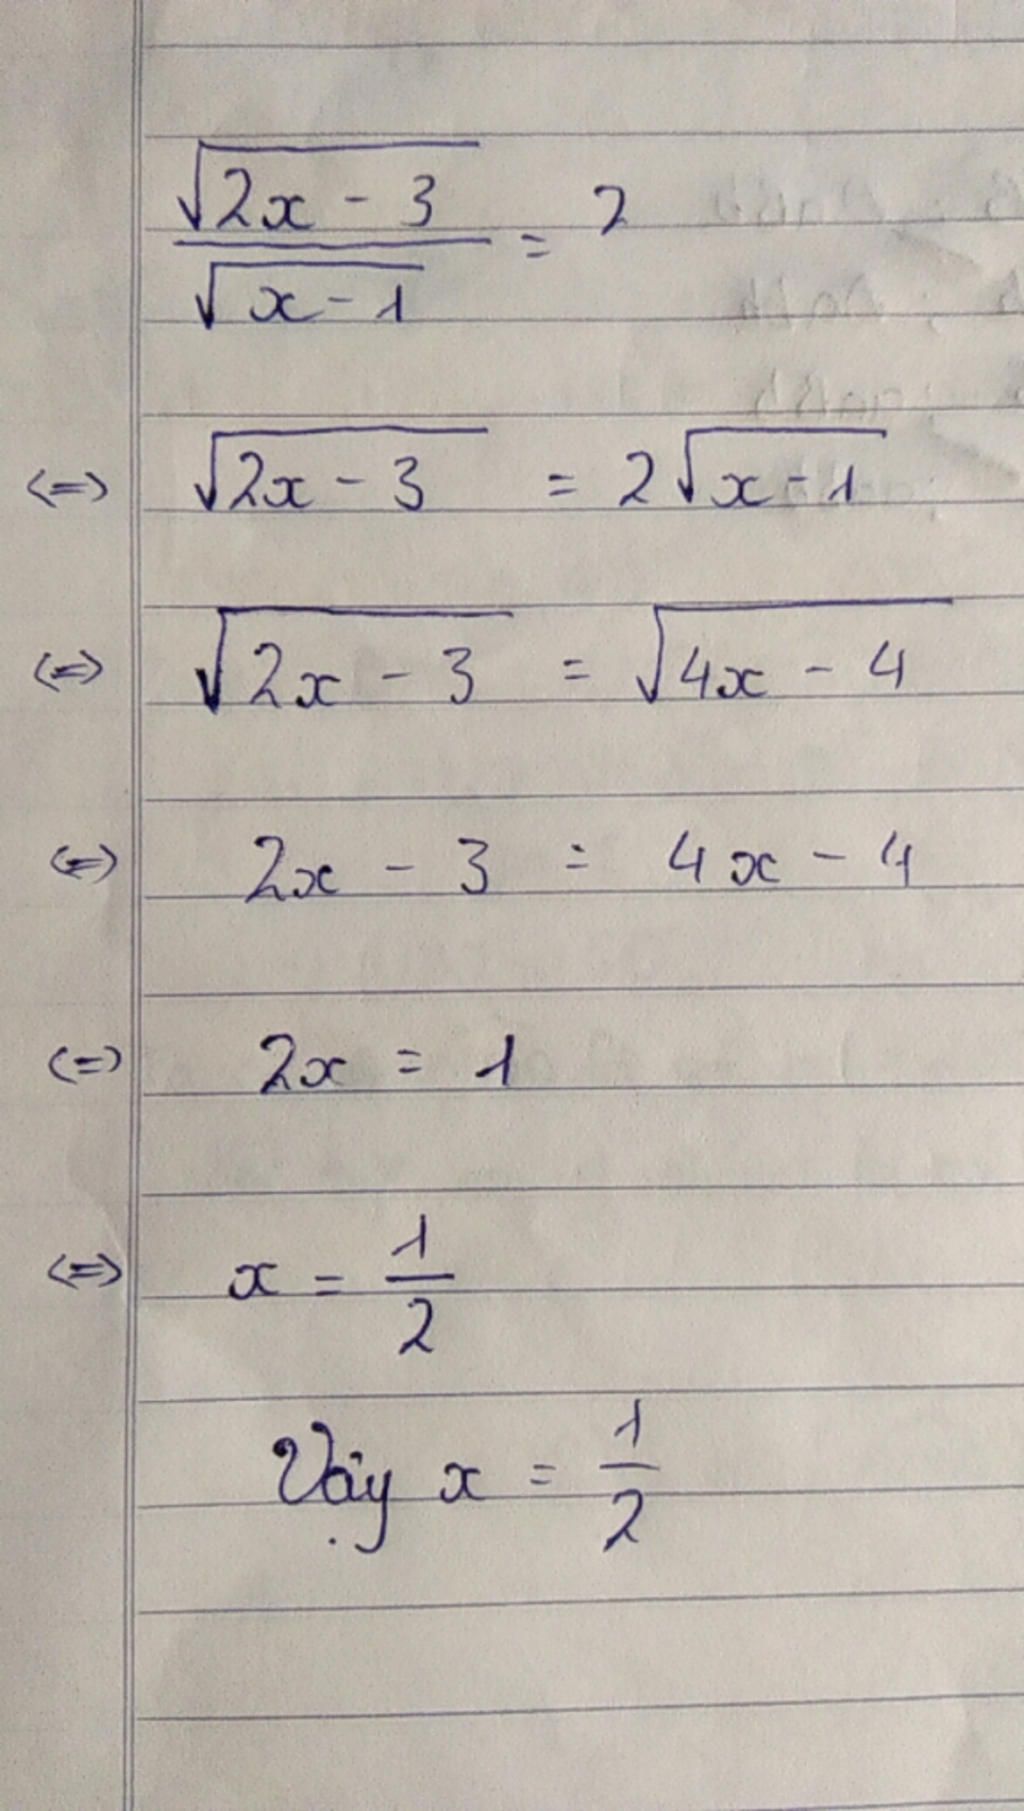 √(2x - 3) / √(x - 1) = 2
<=> √(2x - 3) = 2√(x - 1)
<=> √(2x - 3) = √(4x - 4)
<=> 2x - 3 = 4x - 4
<=> 2x = 1
<=> x = 1/2
Vậy x = 1/2